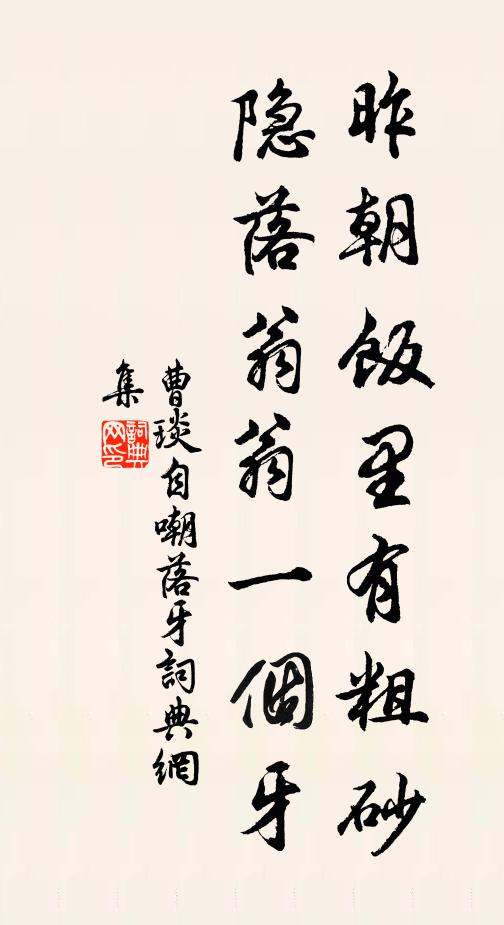 昨朝飯里有粗砂
隐落翁翁一個牙
曹琰自嘲落牙詞典網
集
詞典
网印